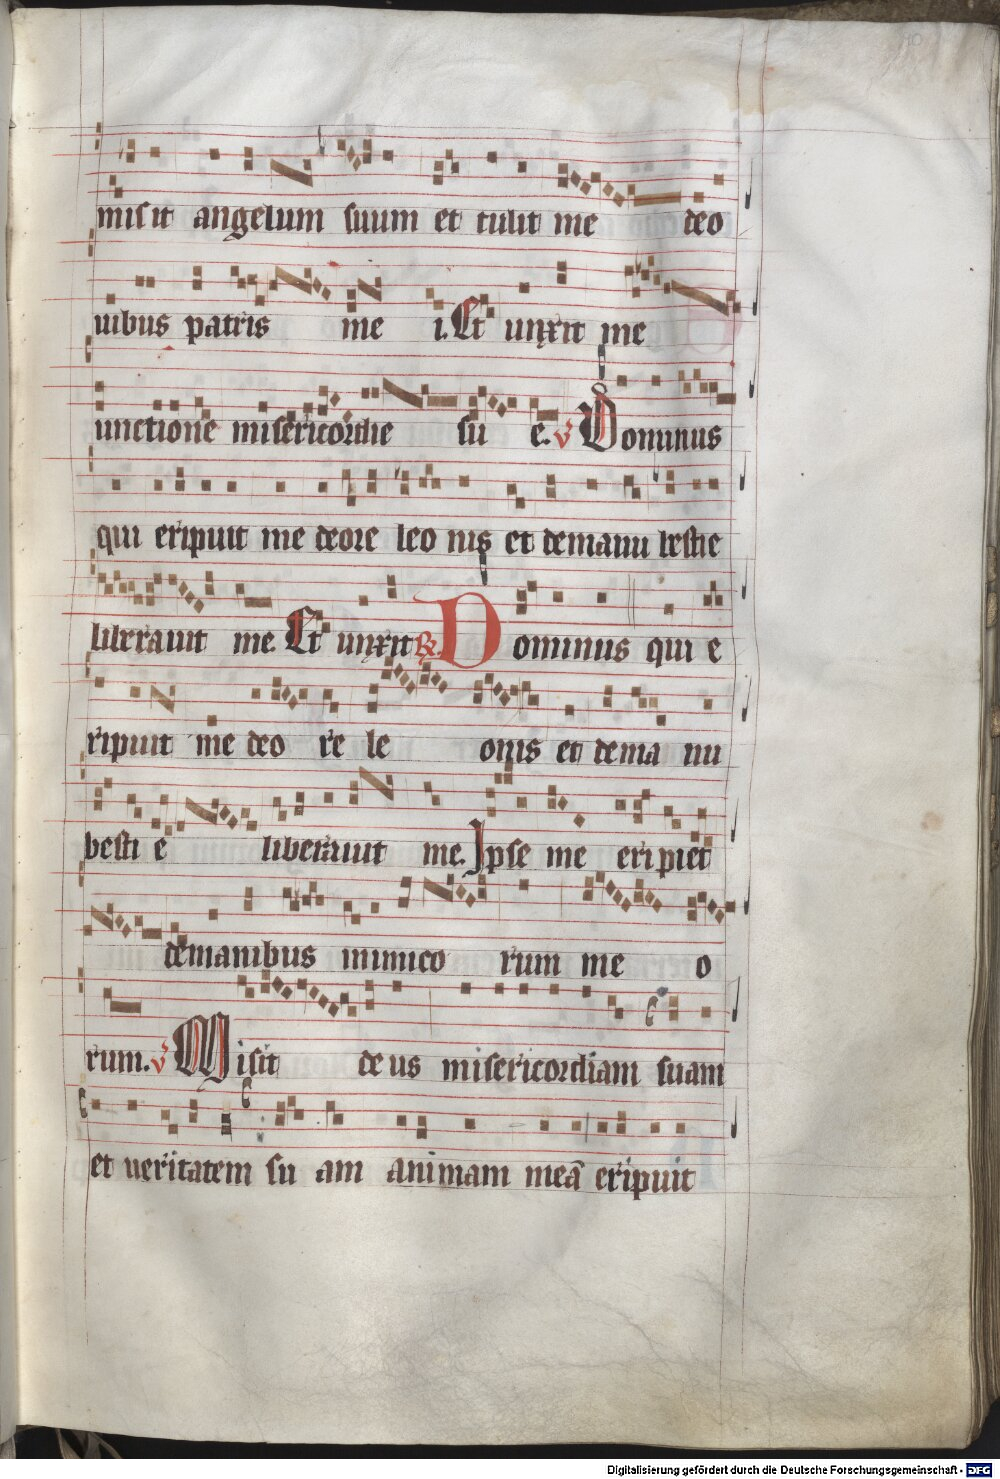 misit angelum suum et tulit me deo
uibus patris me i. Et unxit me
unctione misericordie su e. v Dominus
qui eripuit me deore leo nis et demanu bestie
liberauit me. Et unxit R. Dominus qui e
ripuit me deo re le onis et dema nu
besti e liberauit me. Ipse me eripiet
demanibus inimico rum me o
rum. v Misit de us misericordiam suam
et ueritatem su am animam meā eripuit
Digitalisierung gefördert durch die Deutsche Forschungsgemeinschaft - DFG